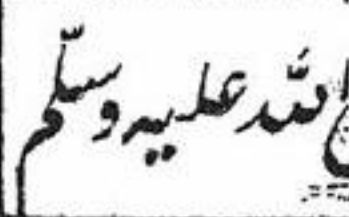 الله علیہ وسلّم